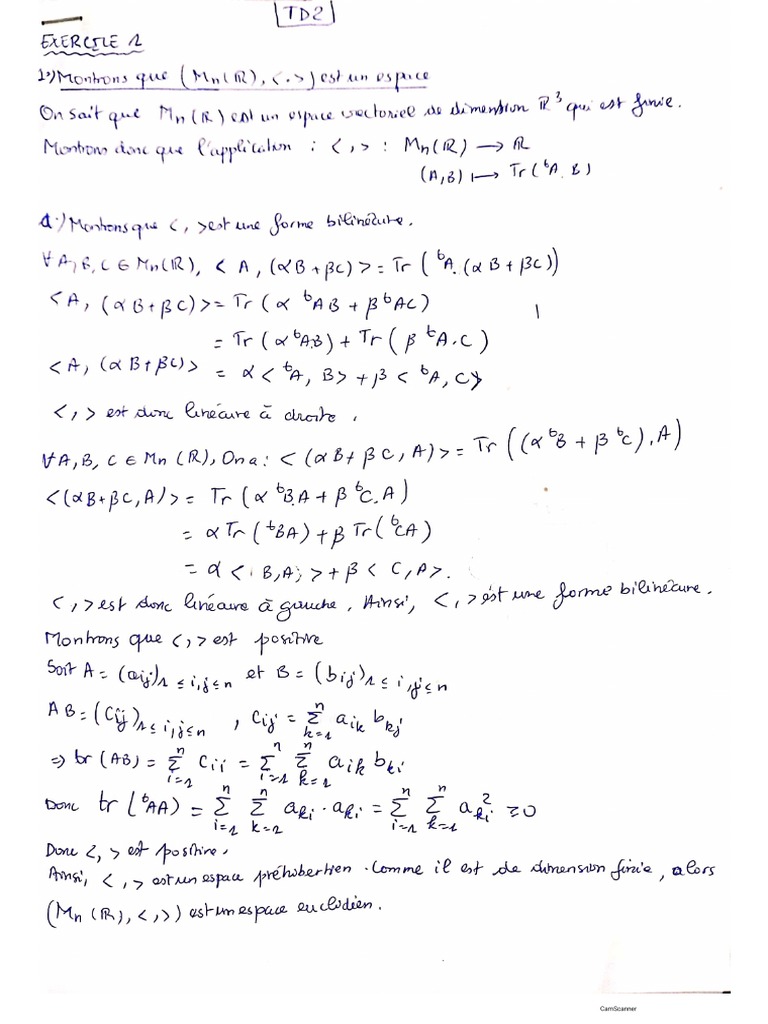 TD2
EXERCICE 1
1°) Montrons que (Mn(ℝ), <.>) est un espace
On sait que Mn(ℝ) est un espace vectoriel de dimension ℝ³ qui est finie.
Montrons donc que l'application : <,> : Mn(ℝ) → ℝ
(A,B) ↦ Tr(ᵗA.B)
a.) Montrons que <,> est une forme bilinéaire.
∀ A, B, C ∈ Mn(ℝ), < A, (αB + βC) > = Tr(ᵗA.(αB + βC))
<A, (αB + βC)> = Tr(α ᵗAB + β ᵗAC)
= Tr(α ᵗAB) + Tr(β ᵗA.C)
<A, (αB + βC)> = α<ᵗA, B> + β<ᵗA, C>
<,> est donc linéaire à droite.
∀A, B, C ∈ Mn(ℝ), On a : <(αB + βC, A)> = Tr((α ᵗB + β ᵗC).A)
<(αB+βC, A)> = Tr(α ᵗB.A + β ᵗC.A)
= α Tr(ᵗBA) + β Tr(ᵗCA)
= α < B,A > + β < C, A>.
<,> est donc linéaire à gauche. Ainsi, <,> est une forme bilinéaire.
Montrons que <,> est positive
Soit A = (aij)1≤i,j≤n et B = (bij)1≤i,j≤n
AB = (Cij)1≤i,j≤n , Cij = Σ_{k=1}^{n} aik bkj
⇒ tr(AB) = Σ_{i=1}^{n} Cii = Σ_{i=1}^{n} Σ_{k=1}^{n} aik bki
Donc tr(ᵗAA) = Σ_{i=1}^{n} Σ_{k=1}^{n} aki · aki = Σ_{i=1}^{n} Σ_{k=1}^{n} aki² ≥ 0
Donc <,> est positive.
Ainsi, <,> est un espace préhibertien. Comme il est de dimension finie, alors
(Mn(ℝ), <,>) est un espace euclidien.
CamScanner